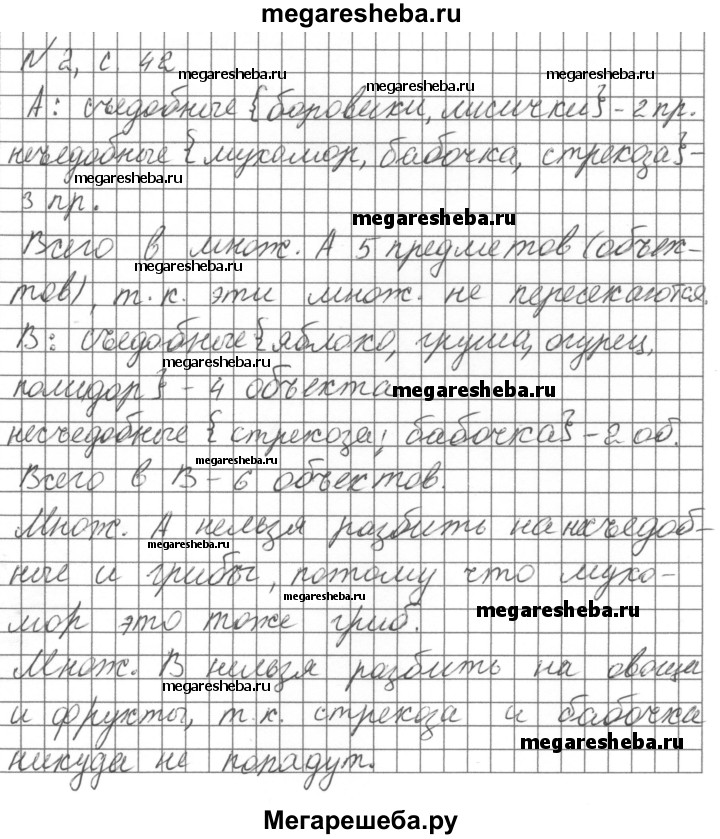 megaresheba.ru
№ 2, с. 42
megaresheba.ru
megaresheba.ru
megaresheba.ru
А: съедобные {боровики, лисички} - 2 пр.
несъедобные { мухомор, бабочка, стрекоза} -
megaresheba.ru
3 пр.
megaresheba.ru
Всего в множ. А 5 предметов (объек-
megaresheba.ru
тов), т.к. эти множ. не пересекаются.
В: съедобные {яблоко, груша, огурец,
megaresheba.ru
помидор} - 4 объекта
megaresheba.ru
несъедобные { стрекоза; бабочка} - 2 об.
megaresheba.ru
Всего в В - 6 объектов.
Множ. А нельзя разбить на несъедоб-
megaresheba.ru
ные и грибы, потому что мухо-
megaresheba.ru
megaresheba.ru
мор это тоже гриб.
Множ. В нельзя разбить на овощи
megaresheba.ru
и фрукты, т.к. стрекоза и бабочка
megaresheba.ru
никуда не попадут.
Мегарешеба.ру